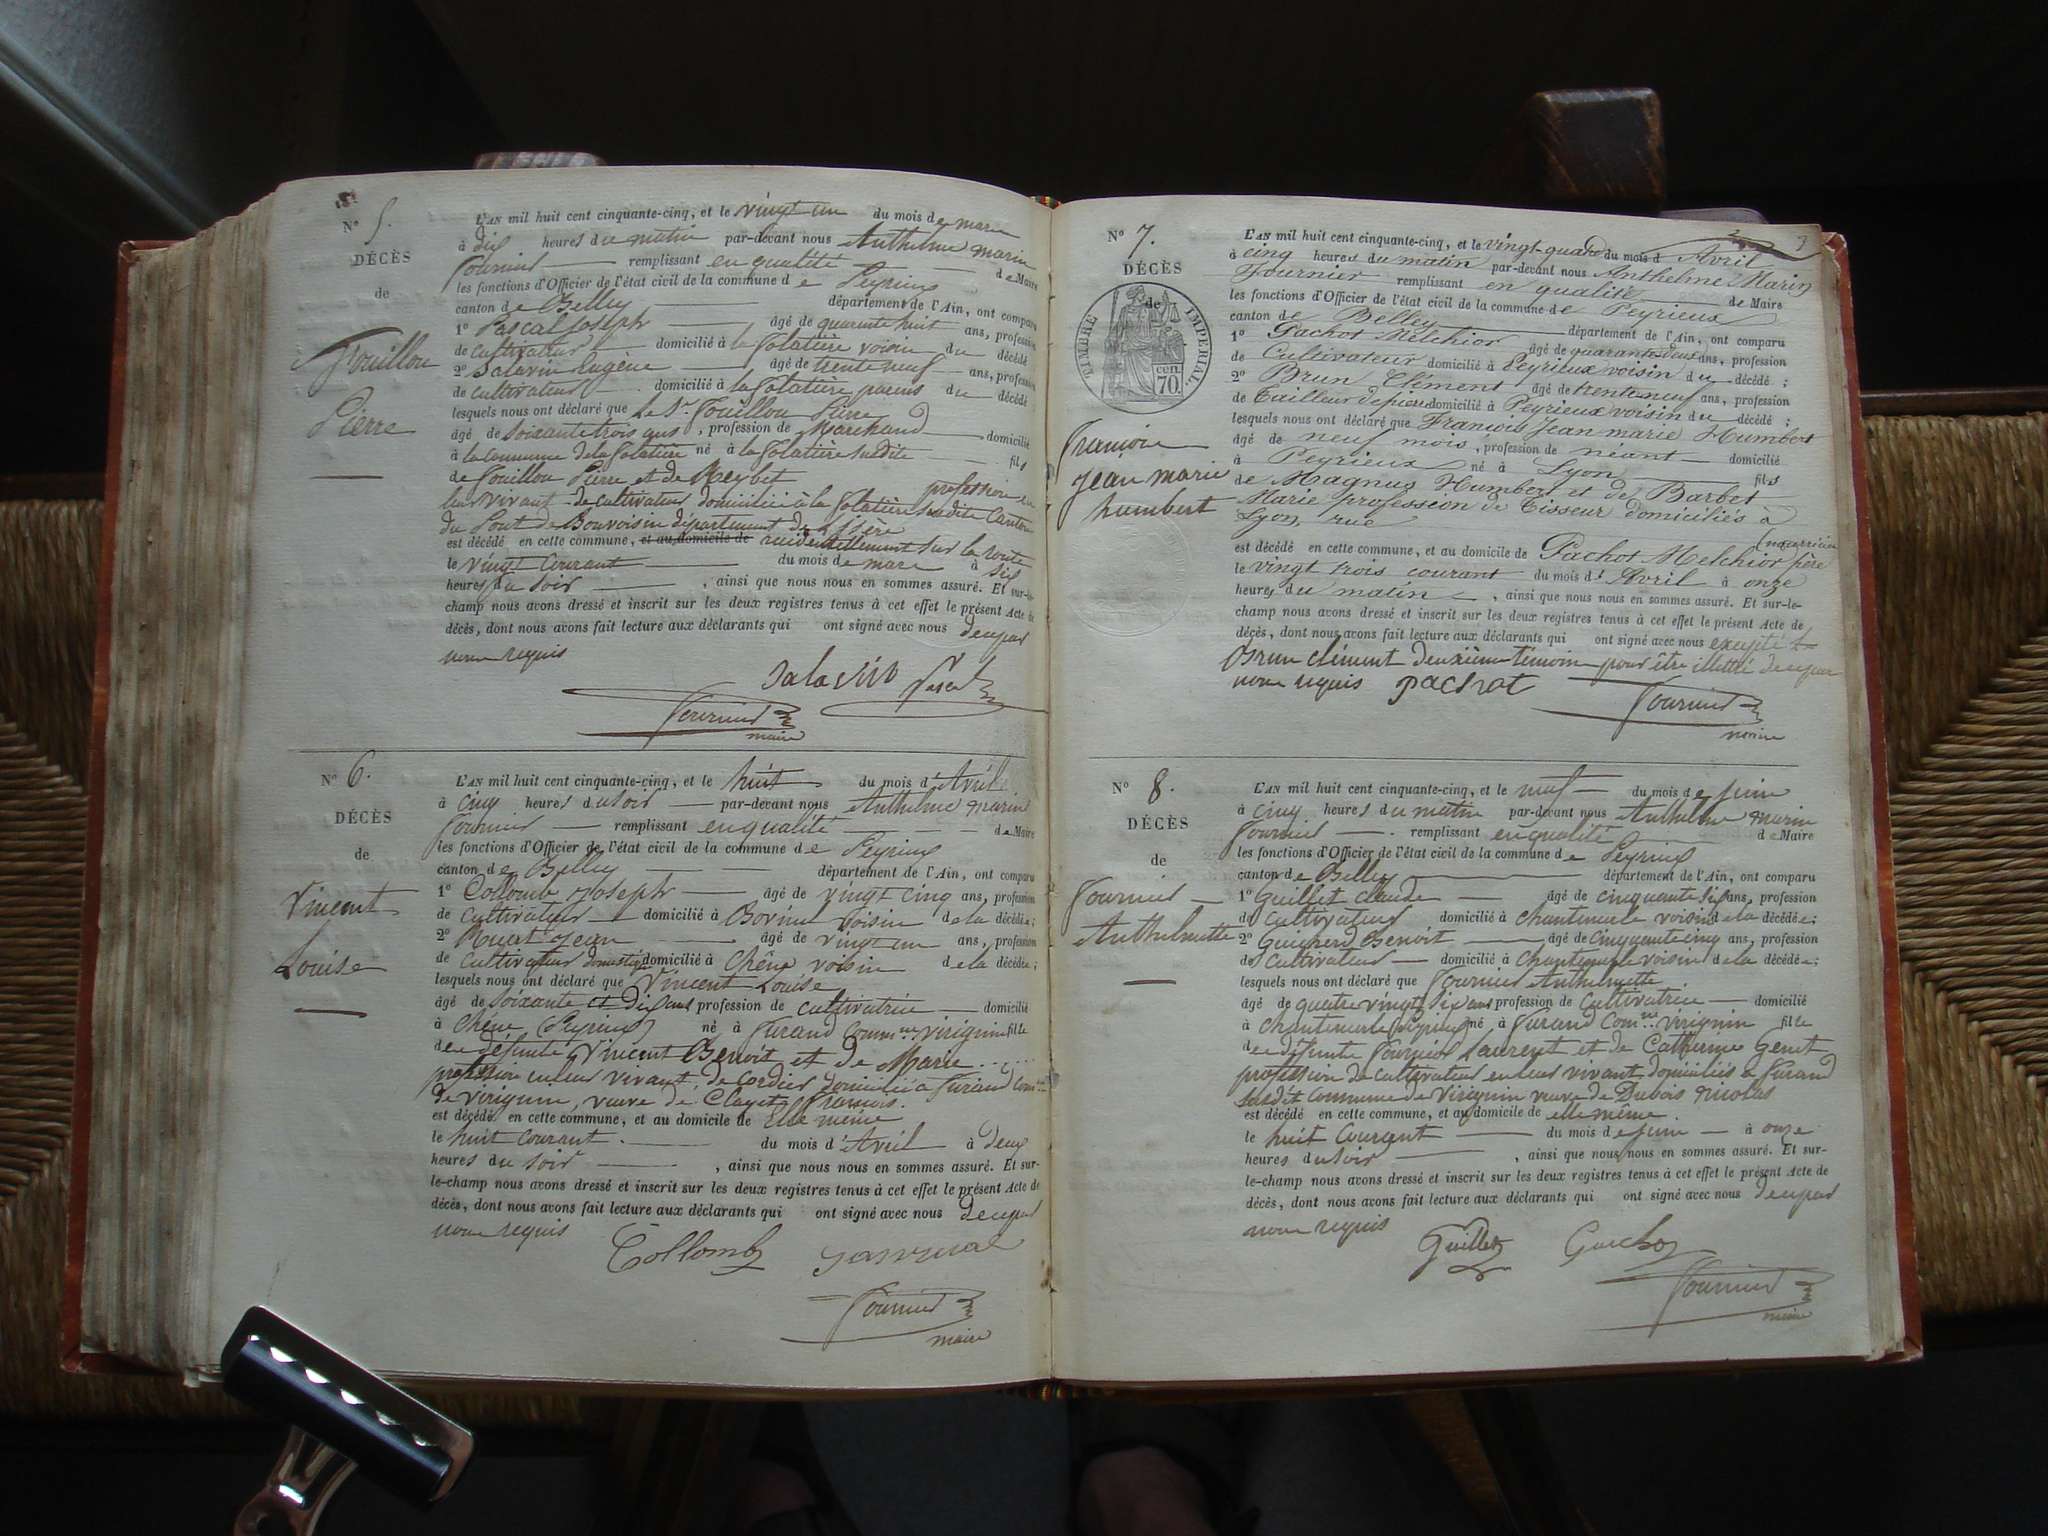 N° 5.
DÉCÈS
de
Fouillou
Pierre
L'AN mil huit cent cinquante-cinq, et le vingt un du mois de mars
à dix heures du matin par-devant nous Anthelme Marin
Fournier remplissant en qualité de Maire
les fonctions d'Officier de l'état civil de la commune de Peyrieux
canton de Belley département de l'Ain, ont comparu
1° Pascal Joseph âgé de quarante huit ans, profession
de cultivateur domicilié à la folatière voisin du décédé
2° Salavin Eugène âgé de trente neuf ans, profession
de cultivateur domicilié à la folatière du décédé
lesquels nous ont déclaré que le Sr. Fouillou Pierre
âgé de soixante trois ans, profession de Marchand domicilié
à la commune de la folatière né à la folatière susdite fils
de Fouillou Pierre et de Meybet profession en
leur vivant de cultivateur domicilié à la folatière susdite Canton
du Pont de Bonvoisin département de l'Isère
est décédé en cette commune, et au domicile de accidentellement sur la route
le vingt courant du mois de mars à six
heures du soir, ainsi que nous nous en sommes assuré. Et sur-le-
champ nous avons dressé et inscrit sur les deux registres tenus à cet effet le présent Acte de
décès, dont nous avons fait lecture aux déclarants qui ont signé avec nous de ce par
nous requis
Salavin Pascal
Fournier
maire
N° 6.
DÉCÈS
de
Vincent
Louise
L'AN mil huit cent cinquante-cinq, et le huit du mois d'Avril
à cinq heures du soir par-devant nous Anthelme Marin
Fournier remplissant en qualité de Maire
les fonctions d'Officier de l'état civil de la commune de Peyrieux
canton de Belley département de l'Ain, ont comparu
1° Collomb Joseph âgé de vingt cinq ans, profession
de cultivateur domicilié à Bovinel voisin de la décédée;
2° Ruat Jean âgé de vingt un ans, profession
de cultivateur domestique domicilié à Chêne voisin de la décédée;
lesquels nous ont déclaré que Vincent Louise
âgé de soixante et dix ans profession de cultivatrice domicilié
à Chêne (Peyrieux) né à Furand Comm.ne virignin fille
de défunts Vincent Benoit et de Marie ....
profession en leur vivant de cordier domicilié à Furand Com.ne
de virignin, veuve de Clayet François.
est décédé en cette commune, et au domicile de Elle même
le huit courant du mois d'Avril à deux
heures du soir, ainsi que nous nous en sommes assuré. Et sur-
le-champ nous avons dressé et inscrit sur les deux registres tenus à cet effet le présent Acte de
décès, dont nous avons fait lecture aux déclarants qui ont signé avec nous de ce par
nous requis
Collomb
Fournier
maire
N° 7.
DÉCÈS
de
TIMBRE IMPERIAL.
70 cen
François
Jean marie
humbert
L'AN mil huit cent cinquante-cinq, et le vingt-quatre du mois d'Avril
à cinq heures du matin par-devant nous Anthelme Marin
Fournier remplissant en qualité de Maire
les fonctions d'Officier de l'état civil de la commune de Peyrieux
canton de Belley département de l'Ain, ont comparu
1° Pachot Melchior âgé de quarante deux ans, profession
de Cultivateur domicilié à Peyrieux voisin du décédé;
2° Brun Clément âgé de trente neuf ans, profession
de Tailleur de pierre domicilié à Peyrieux voisin du décédé;
lesquels nous ont déclaré que François Jean marie Humbert
âgé de neuf mois, profession de néant domicilié
à Peyrieux né à Lyon fils
de Magnus Humbert et de Barbet
Marie profession de Tisseur domiciliés à
Lyon, rue
est décédé en cette commune, et au domicile de Pachot Melchior père nourricier
le vingt trois courant du mois d'Avril à onze
heures du matin, ainsi que nous nous en sommes assuré. Et sur-le-
champ nous avons dressé et inscrit sur les deux registres tenus à cet effet le présent Acte de
décès, dont nous avons fait lecture aux déclarants qui ont signé avec nous excepté le
Brun clément deuxième témoin pour être illettré de ce par
nous requis Pachot
Fournier
maire
N° 8.
DÉCÈS
de
Fournier
Anthelmette
L'AN mil huit cent cinquante-cinq, et le neuf du mois de juin
à cinq heures du matin par-devant nous Anthelme Marin
Fournier remplissant en qualité de Maire
les fonctions d'Officier de l'état civil de la commune de Peyrieux
canton de Belley département de l'Ain, ont comparu
1° Guillet Claude âgé de cinquante six ans, profession
de cultivateur domicilié à Chantemerle voisin de la décédée;
2° Guicherd Benoit âgé de cinquante cinq ans, profession
de cultivateur domicilié à Chantemerle voisin de la décédée;
lesquels nous ont déclaré que Fournier Anthelmette
âgé de quatre vingt six ans profession de Cultivatrice domicilié
à Chantemerle (Peyrieux) né à Furand Com.ne Virignin fille
de défunts Fournier Laurent et de Catherine Genet
profession de cultivateur en leur vivant domiciliés à Furand
susdit commune de Virignin veuve de Dubois Nicolas
est décédé en cette commune, et au domicile de elle même.
le huit courant du mois de juin à onze
heures du soir, ainsi que nous nous en sommes assuré. Et sur-
le-champ nous avons dressé et inscrit sur les deux registres tenus à cet effet le présent Acte de
décès, dont nous avons fait lecture aux déclarants qui ont signé avec nous de ce par
nous requis
Guillet
Fournier
maire